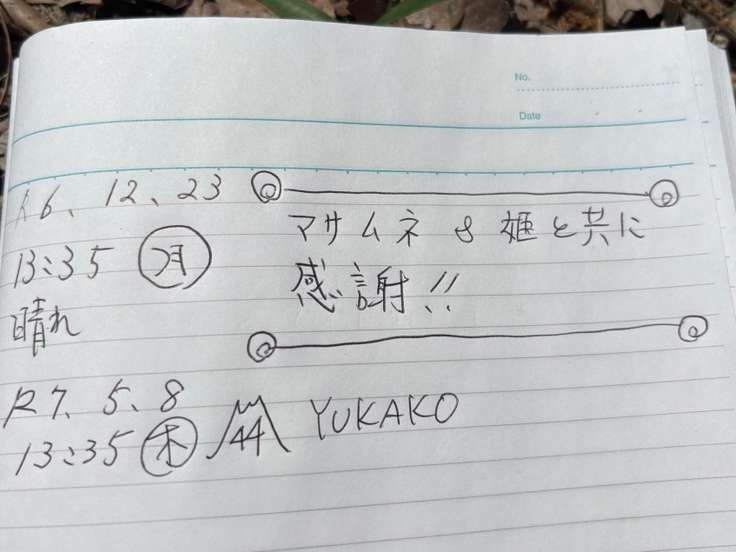 No.
Date
R6、12、23
13:35 月
晴れ
マサムネ & 姫と共に
感謝!!
R7、5、8
13:35 木 44 YUKAKO